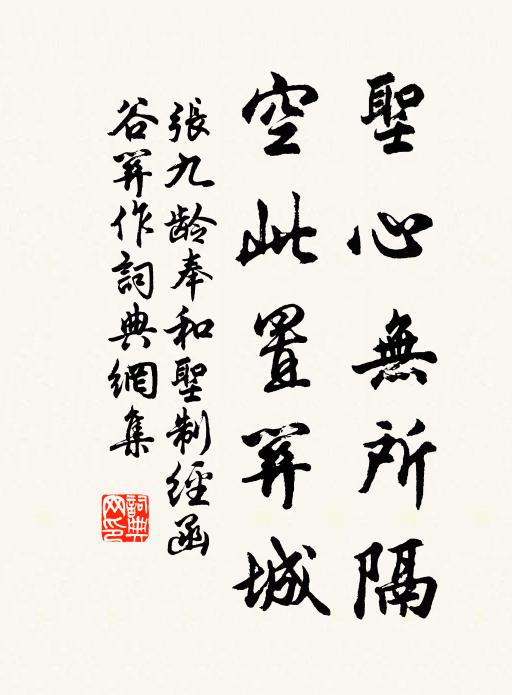 聖心無所隔
空此置關城
張九龄奉和聖制經函
谷關作詞典網集
詞典
网印